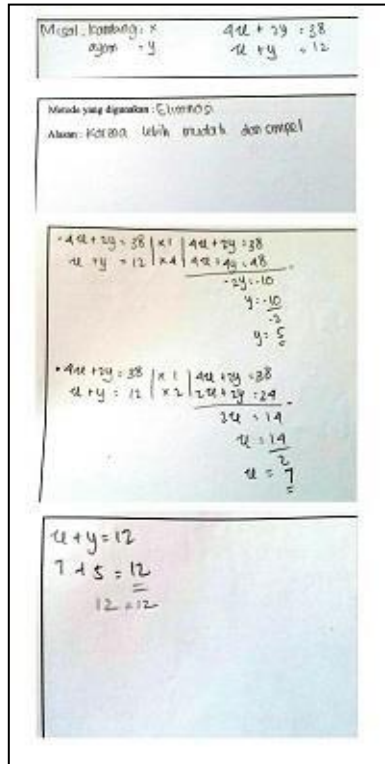 Misal : kambing : x 4x + 2y = 38
ayam = y x + y = 12
Metode yang digunakan : Eliminasi
Alasan : Karena lebih mudah dan simpel
• 4x + 2y = 38 | x 1 | 4x + 2y = 38
x + y = 12 | x 4 | 4x + 4y = 48 -
-2y = -10
y = -10
-2
y = 5
• 4x + 2y = 38 | x 1 | 4x + 2y = 38
x + y = 12 | x 2 | 2x + 2y = 24 -
2x = 14
x = 14
2
x = 7
x + y = 12
7 + 5 = 12
12 = 12